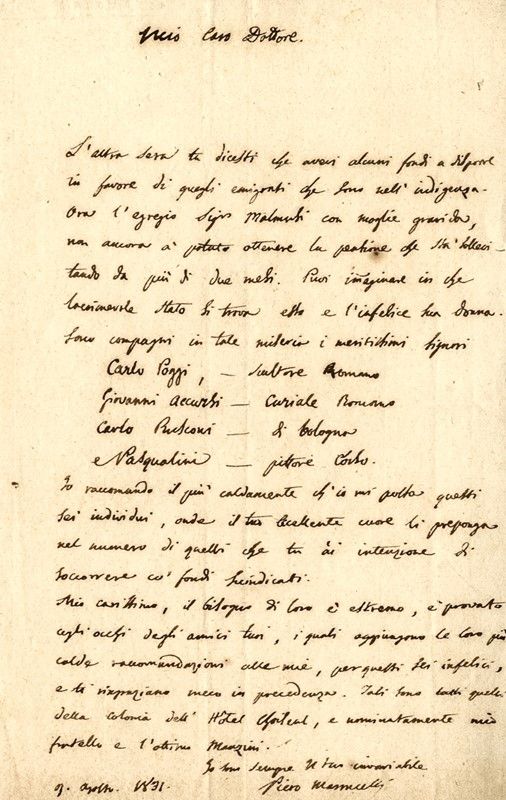 Mio Caro Dottore.
L'altra sera tu dicesti che avevi alcuni fondi a disporre
in favore di quegli emigrati che sono nell' indigenza.
Ora l'egregio Sigr Malmusi con moglie gravida,
non ancora à potuto ottenere la pensione che sta solleci-
tando da più di due mesi. Puoi imaginare in che
lacrimevole stato si trova esso e l'infelice sua donna.
Sono compagni in tale miseria i meritissimi signori
Carlo Poggi, — scultore Romano
Giovanni Accursi — Curiale Romano
Carlo Rusconi — di bologna
e Pasqualini — pittore Corso.
Io raccomando il più caldamente ch'io mi possa questi
sei individui, onde il tuo eccellente cuore li preponga
nel numero di quelli che tu ài intenzione di
soccorrere co' fondi suindicati.
Mio carissimo, il bisogno di loro è estremo, è provato
agli occhi degli amici tuoi, i quali aggiungono le loro più
calde raccomandazioni alle mie, per questi sei infelici,
e ti ringraziano meco in precedenza. Tali sono tutti quelli
della Colonia dell' Hôtel Choiseul, e nominatamente mio
fratello e l'ottimo
Io sono sempre Il tuo invariabile
9. Agosto. 1831. Piero Maroncelli